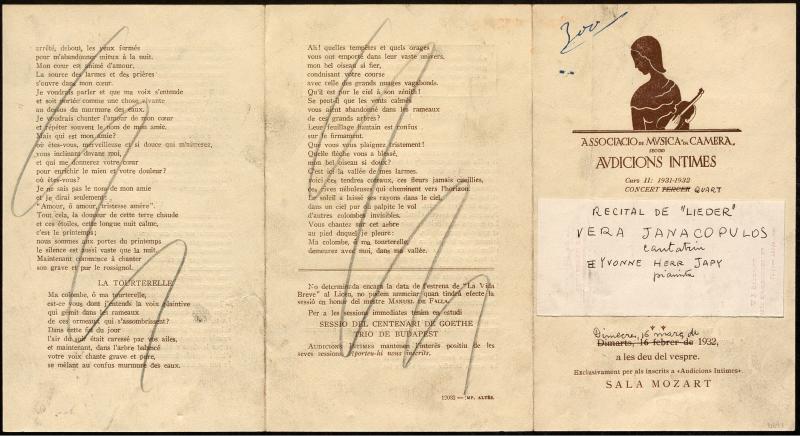 arrêté, debout, les yeux fermés
pour m'abandonner mieux à la nuit.
Mon cœur est animé d'amour,
La source des larmes et des prières
s'ouvre dans mon cœur.
Je voudrais parler et que ma voix s'entende
et soit portée comme une chose vivante
au dessus du murmure des eaux.
Je voudrais chanter l'amour de mon cœur
et répéter souvent le nom de mon amie.
Mais qui est mon amie?
où êtes-vous, merveilleuse et si douce qui m'aimerez,
vous inclinant devant moi,
et qui me donnerez votre cœur
pour enrichir le mien et votre douleur?
où êtes-vous?
Je ne sais pas le nom de mon amie
et je dirai seulement:
"Amour, ô amour, tristesse amère".
Tout cela, la douceur de cette terre chaude
et ces étoiles, cette longue nuit calme,
c'est le printemps;
nous sommes aux portes du printemps
le silence est aussi vaste que la nuit.
Maintenant commence à chanter
son grave et par le rossignol.
LA TOURTERELLE
Ma colombe, ô ma tourterelle,
est-ce vous dont j'entends la voix plaintive
qui gémit dans les rameaux
de ces ormeaux qui s'assombrissent?
Dans cette fin du jour
l'air du soir était caressé par vos ailes,
et maintenant, dans l'arbre balancé
votre voix chante grave et pure,
se mêlant au confus murmure des eaux.
Ah! quelles tempêtes et quels orages
vous ont emporté dans leur vaste univers,
mon bel oiseau si fier,
conduisant votre course
avec celle des grands nuages vagabonds.
Qu'il est pur le ciel à son zénith!
Se peut-il que les vents calmés
vous aient abandonné dans les rameaux
de ces grands arbres?
Leur feuillage lointain est confus
sur le firmament.
Que vous vous plaignez tristement!
Quelle flèche vous a blessé,
mon bel oiseau si doux?
C'est ici la vallée de mes larmes.
voici ces tendres coteaux, ces fleurs jamais cueillies,
ces rives nébuleuses qui cheminent vers l'horizon.
Le soleil a laissé ses rayons dans le ciel.
dans un ciel pur où palpite le vol
d'autres colombes invisibles.
Vous chantez sur cet arbre
au pied duquel je pleure:
Ma colombe, ô ma tourterelle,
demeurez avec moi, dans ma vallée.
No determinada encara la data de l'estrena de "La Vida
Breve" al Liceu, no podem anunciar quan tindrà efecte la
sessió en honor del mestre MANUEL DE FALLA.
Per a les sessions immediates tenim en estudi
SESSIO DEL CENTENARI DE GOETHE
TRIO DE BUDAPEST
AUDICIONS INTIMES mantenen l'interès positiu de les
seves sessions. Aporteu-hi nous inscrits.
12032 — IMP. ALTÉS.
200
ASSOCIACIO DE MVSICA DA CAMERA.
SECCIO
AVDICIONS INTIMES
Curs II: 1931-1932
CONCERT TERCER QUART
RECITAL DE "LIEDER"
VERA JANACOPULOS
cantatriu
YVONNE HERR JAPY
pianista
Dimecres, 16 març de
Dimarts, 16 febrer de 1932,
a les deu del vespre.
Exclusivament per als inscrits a «Audicions Intimes».
SALA MOZART